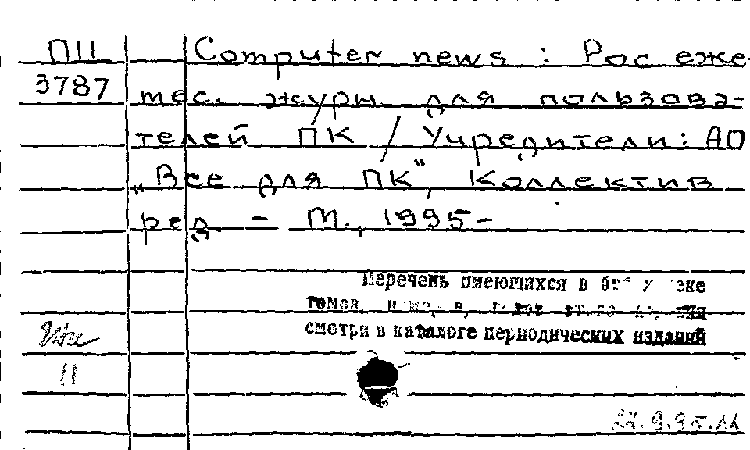 П11 Computer news : Рос еже
3787 мес. журн для пользова-
телей ПК / Учредители: АО
„Все для ПК", Коллектив
ред - М., 1995-
Перечень имеющихся в
томов,
смотри в каталоге периодических изданий
11